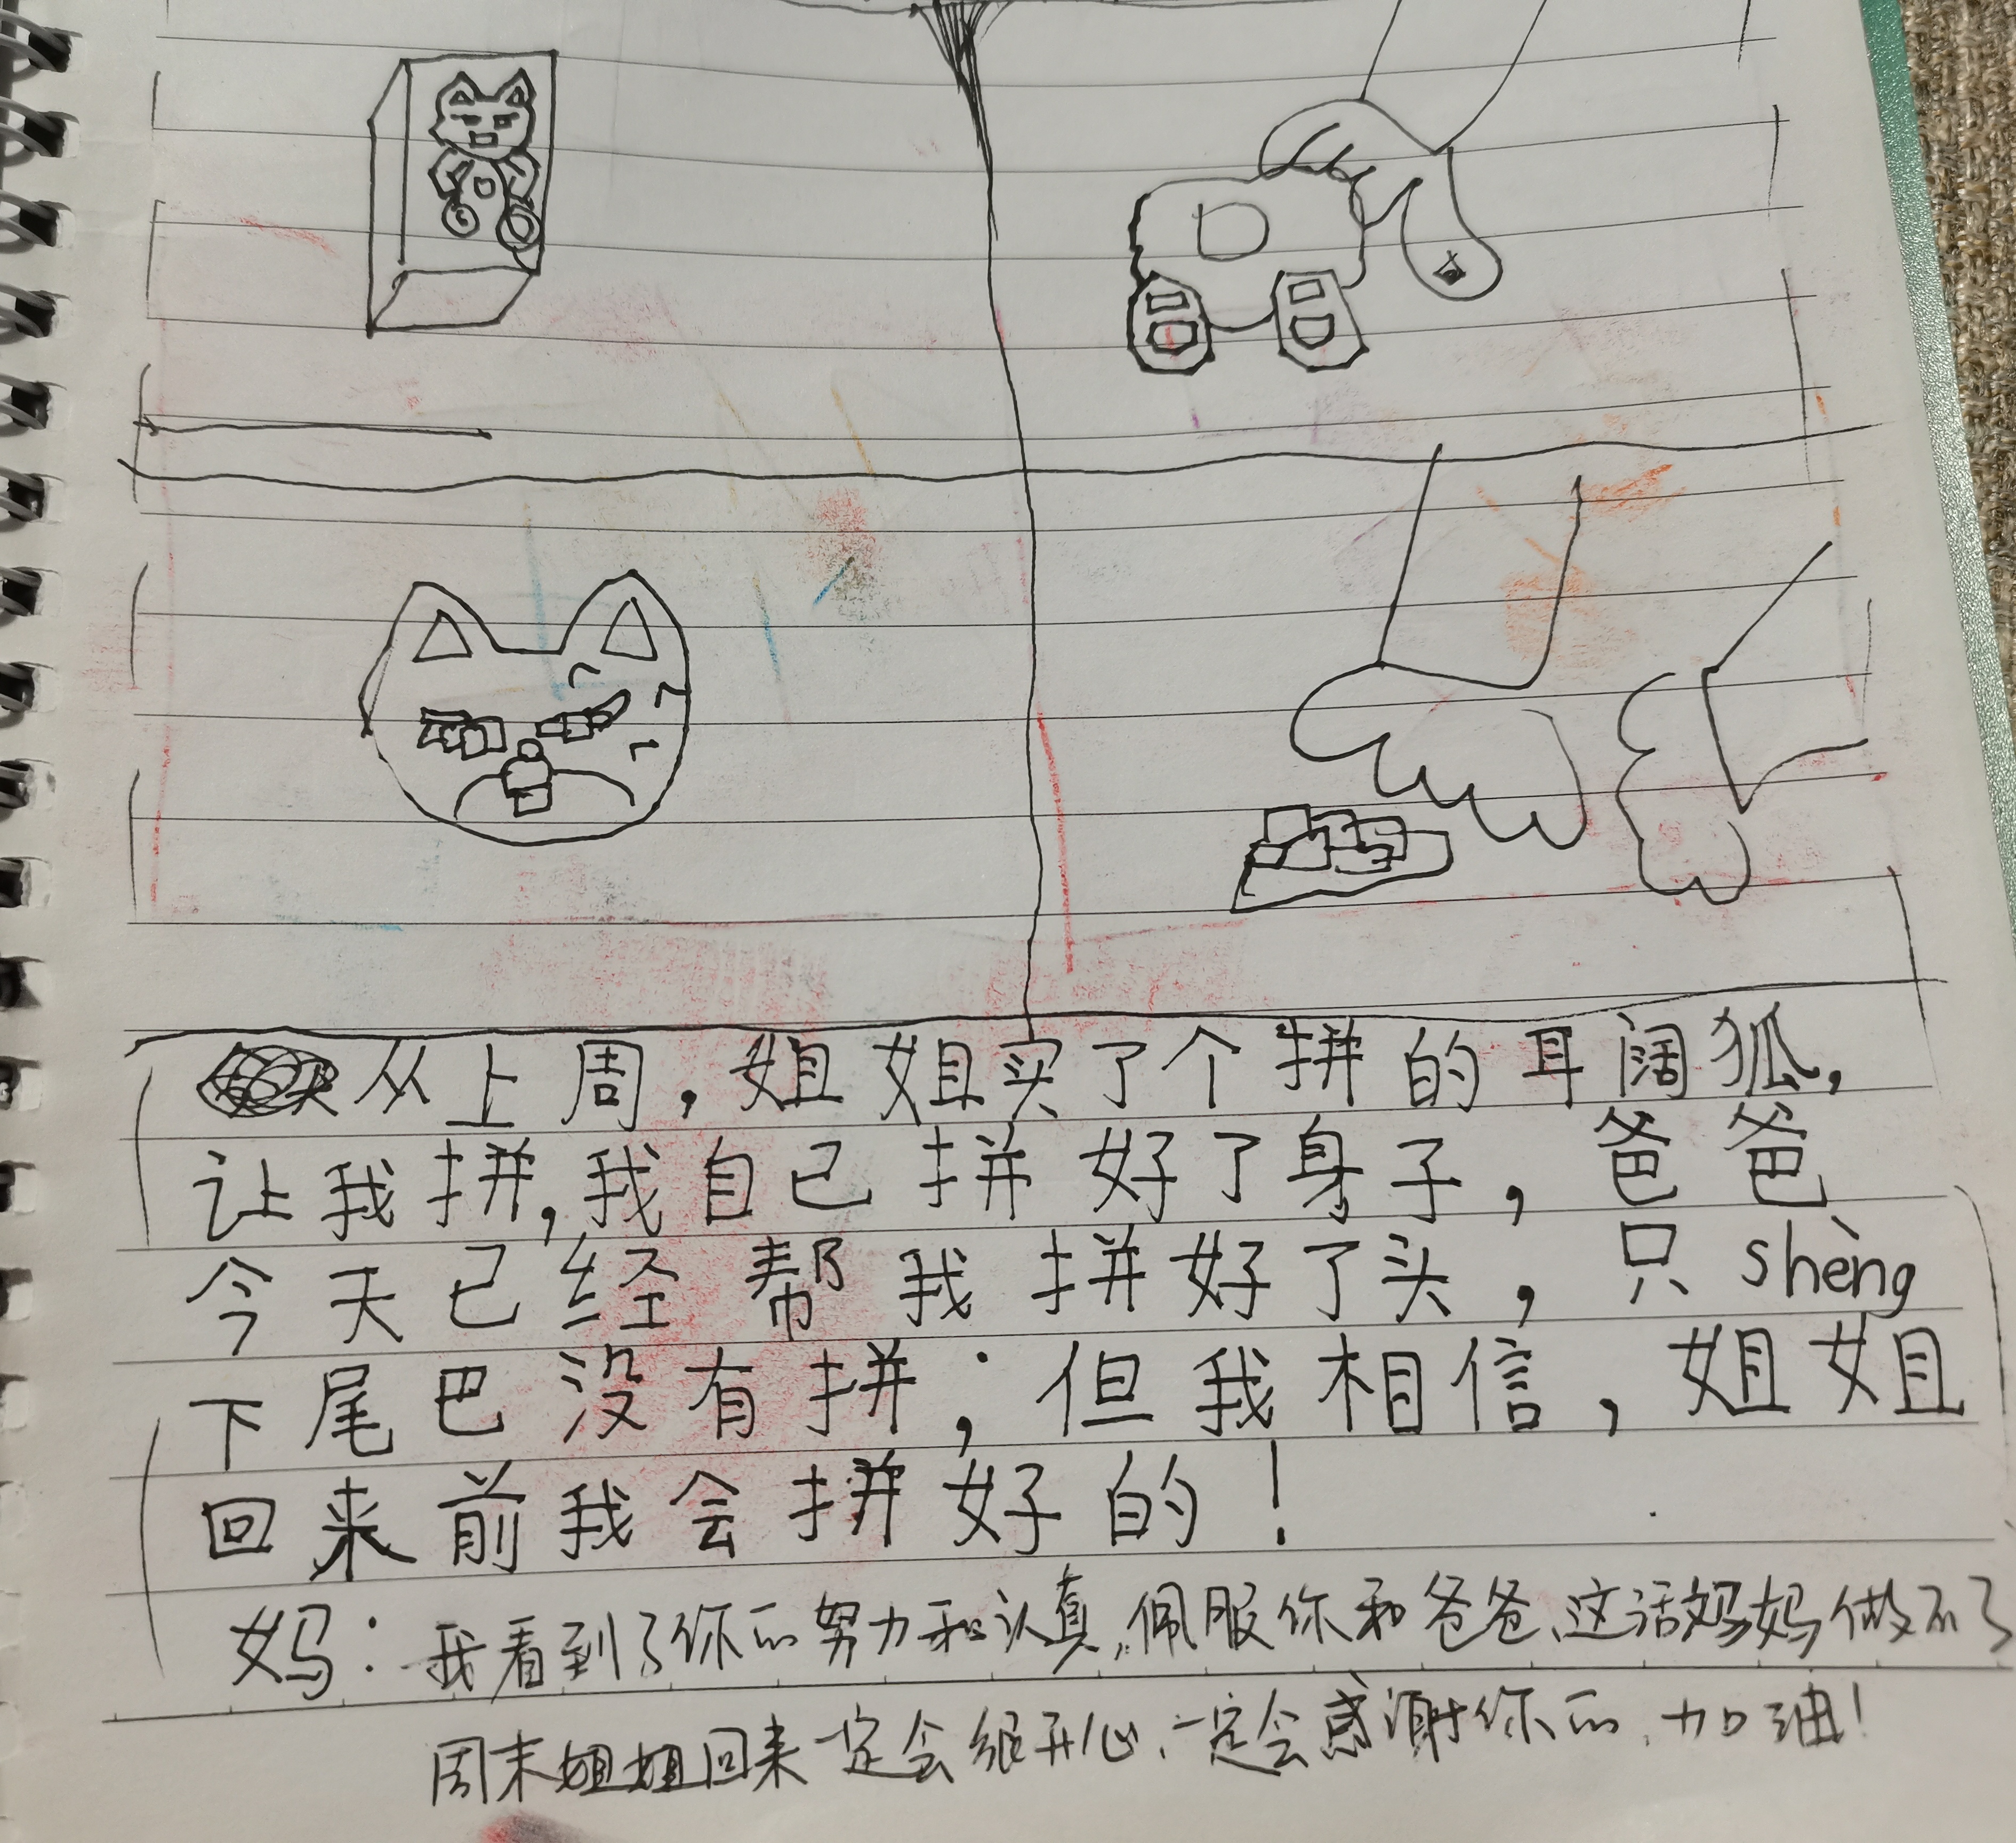 从上周，姐姐买了个拼的耳阔狐，
让我拼，我自己拼好了身子，爸爸
今天已经帮我拼好了头，只shèng
下尾巴没有拼；但我相信，姐姐
回来前我会拼好的！
妈：我看到了你的努力和认真，佩服你和爸爸、这话妈妈做不了
周末姐姐回来一定会很开心、一定会感谢你的、加油！